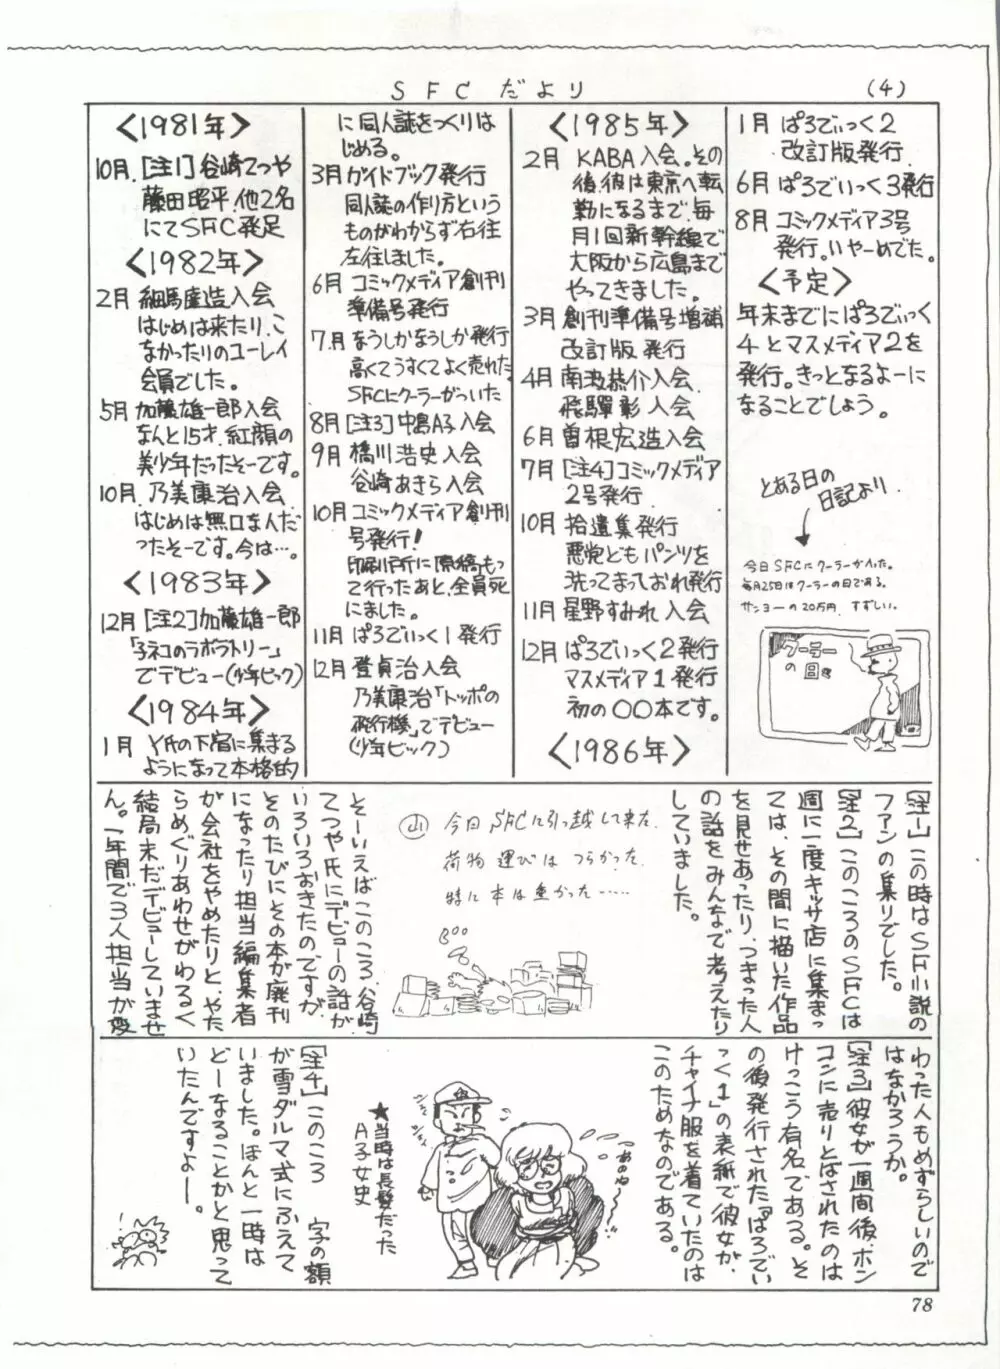 SFCだより
(4)
〈1981年〉
10月 [注1]谷崎てつや
藤田昭平、他2名
にてSFC発足
〈1982年〉
2月 細馬産造入会
はじめは来たり、こ
なかったりのユーレイ
会員でした。
5月 加藤雄一郎入会
なんと15才、紅顔の
美少年だったそーです。
10月 乃美康治入会
はじめは無口な人だ
ったそーです。今は…。
〈1983年〉
12月 [注2]加藤雄一郎
「子ネコのラボラトリー」
でデビュー(少年ビック)
〈1984年〉
1月 Y氏の下宿に集まる
ようになって本格的
に同人誌をつくりは
じめる。
3月 ガイドブック発行
同人誌の作り方という
ものがわからず右往
左往しました。
6月 コミックメディア創刊
準備号発行
7月 なうしかなうしか発行
高くてうすくてよく売れた。
SFCにクーラーがついた
8月 [注3]中島A子入会
9月 橋川浩史入会
谷崎あきら入会
10月 コミックメディア創刊
号発行!
印刷所に原稿もっ
て行ったあと、全員死
にました。
11月 ぱろでぃっく1発行
12月 登貞治入会
乃美康治「トッポの
飛行機」でデビュー
(少年ビック)
〈1985年〉
2月 KABA入会。その
後、彼は東京へ転
勤になるまで、毎
月1回新幹線で
大阪から広島まで
やってきました。
3月 創刊準備号増補
改訂版発行
4月 南波恭介入会
飛騨彰入会
6月 曽根宏造入会
7月 [注4]コミックメディア
2号発行
10月 拾遺集発行
悪党どもパンツを
洗ってまっておれ発行
11月 星野すみれ入会
12月 ぱろでぃっく2発行
マスメディア1発行
初の〇〇本です。
〈1986年〉
1月 ぱろでぃっく2
改訂版発行
6月 ぱろでぃっく3発行
8月 コミックメディア3号
発行。いやーめでた。
〈予定〉
年末までにぱろでぃっく
4とマスメディア2を
発行。きっとなるよーに
なることでしょう。
とある日の
日記より
今日SFCにクーラーがついた。
毎月25日はクーラーの日である。
サンヨーの20万円、すずしい。
クーラー
の日
[注1]この時はSF小説の
ファンの集りでした。
[注2]このころのSFCは
週に一度キッサ店に集まっ
ては、その間に描いた作品
を見せあったり、つまった人
の話をみんなで考えたり
していました。
山
今日SFCに引っ越して来た。
荷物運びはつらかった。
特に本は重かった……
そーいえばこのころ、谷崎
てつや氏にデビューの話が
いろいろおきたのですが、
そのたびにその本が廃刊
になったり担当編集者
が会社をやめたりと、やた
らめぐりあわせがわるく
結局未だデビューしていませ
ん。一年間で3人担当が変
わった人もめずらしいので
はなかろうか。
[注3]彼女が一週間後、ポン
コンに売りとばされたのは
けっこう有名である。そ
の後発行された『ぱろでい
っく1』の表紙で彼女が
チャイナ服を着ていたのは
このためなのである。
あのねぃ
★当時は長髪だった
A子女史
[注4]このころ 字の額
が雪ダルマ式にふえて
いました。ほんと一時は
どーなることかと思って
いたんですよー。
78